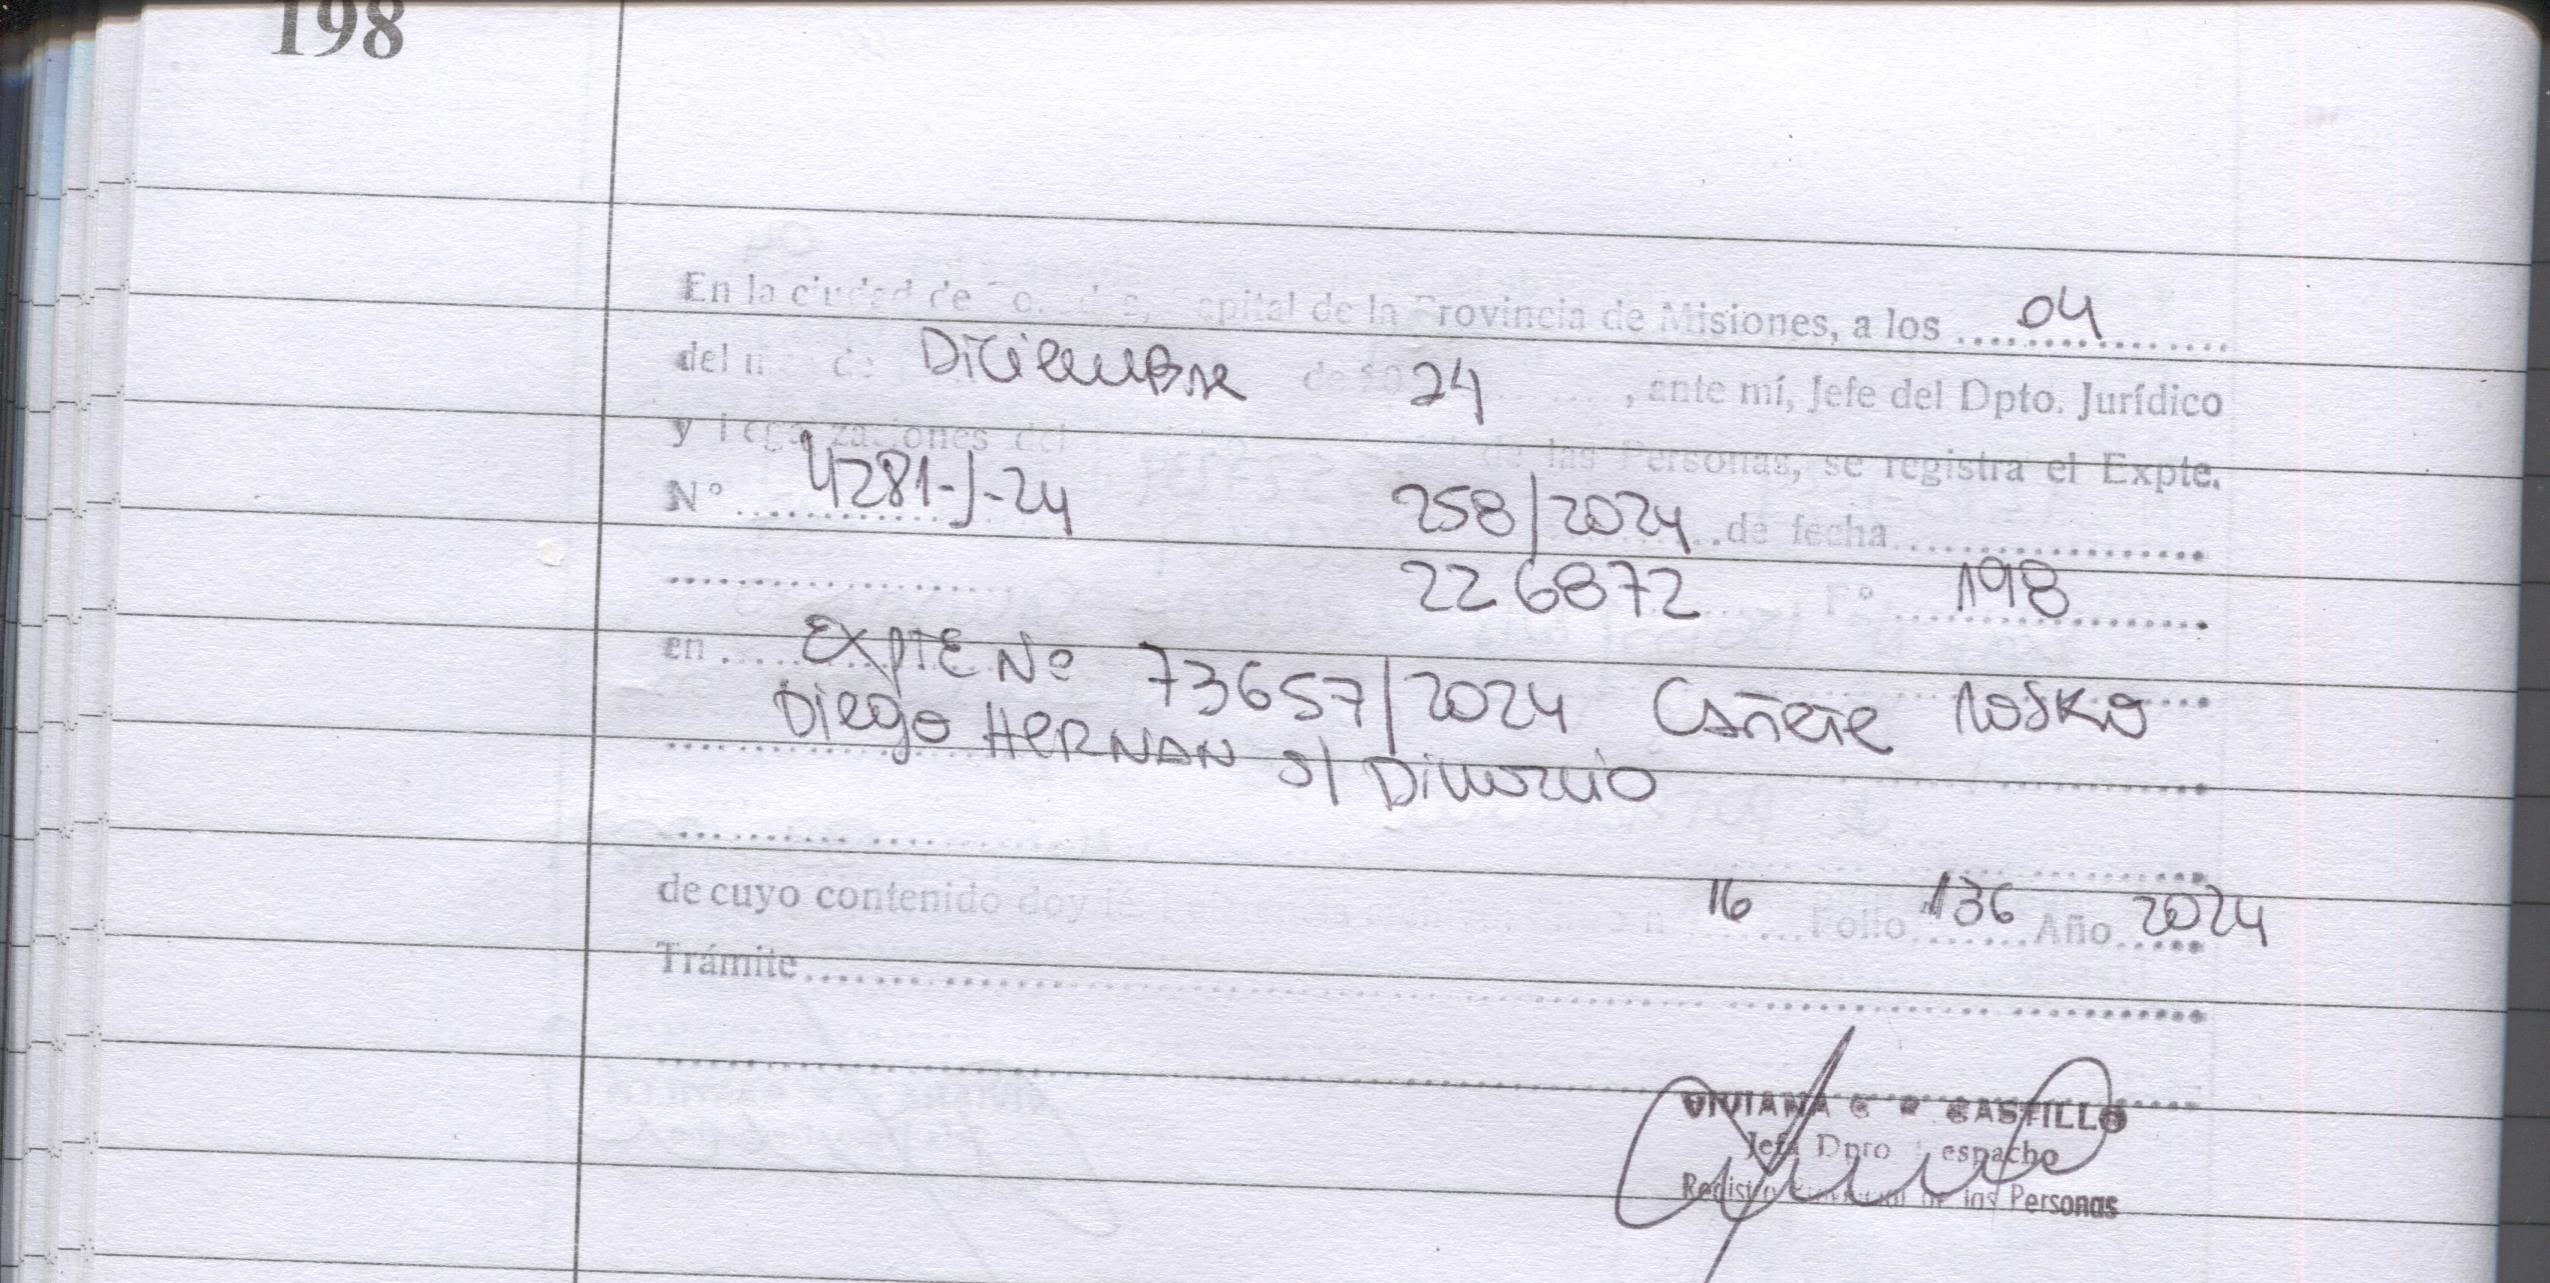 198
En la ciudad de capital de la Provincia de Misiones, a los 04
del de Diciembre de 20 24, ante mí, Jefe del Dpto. Jurídico
y Legalizaciones del de las Personas, se registra el Expte.
N° 4281-J-24 258/2024 de fecha
226872 F° 198
en Expte Nº 73657/2024 Cañete
Diego Hernan s/ Divorcio
de cuyo contenido doy 16 Folio 136 Año 2024
Trámite
VIVIANA CASTILLO
Jefa Dpto Despacho
de las Personas